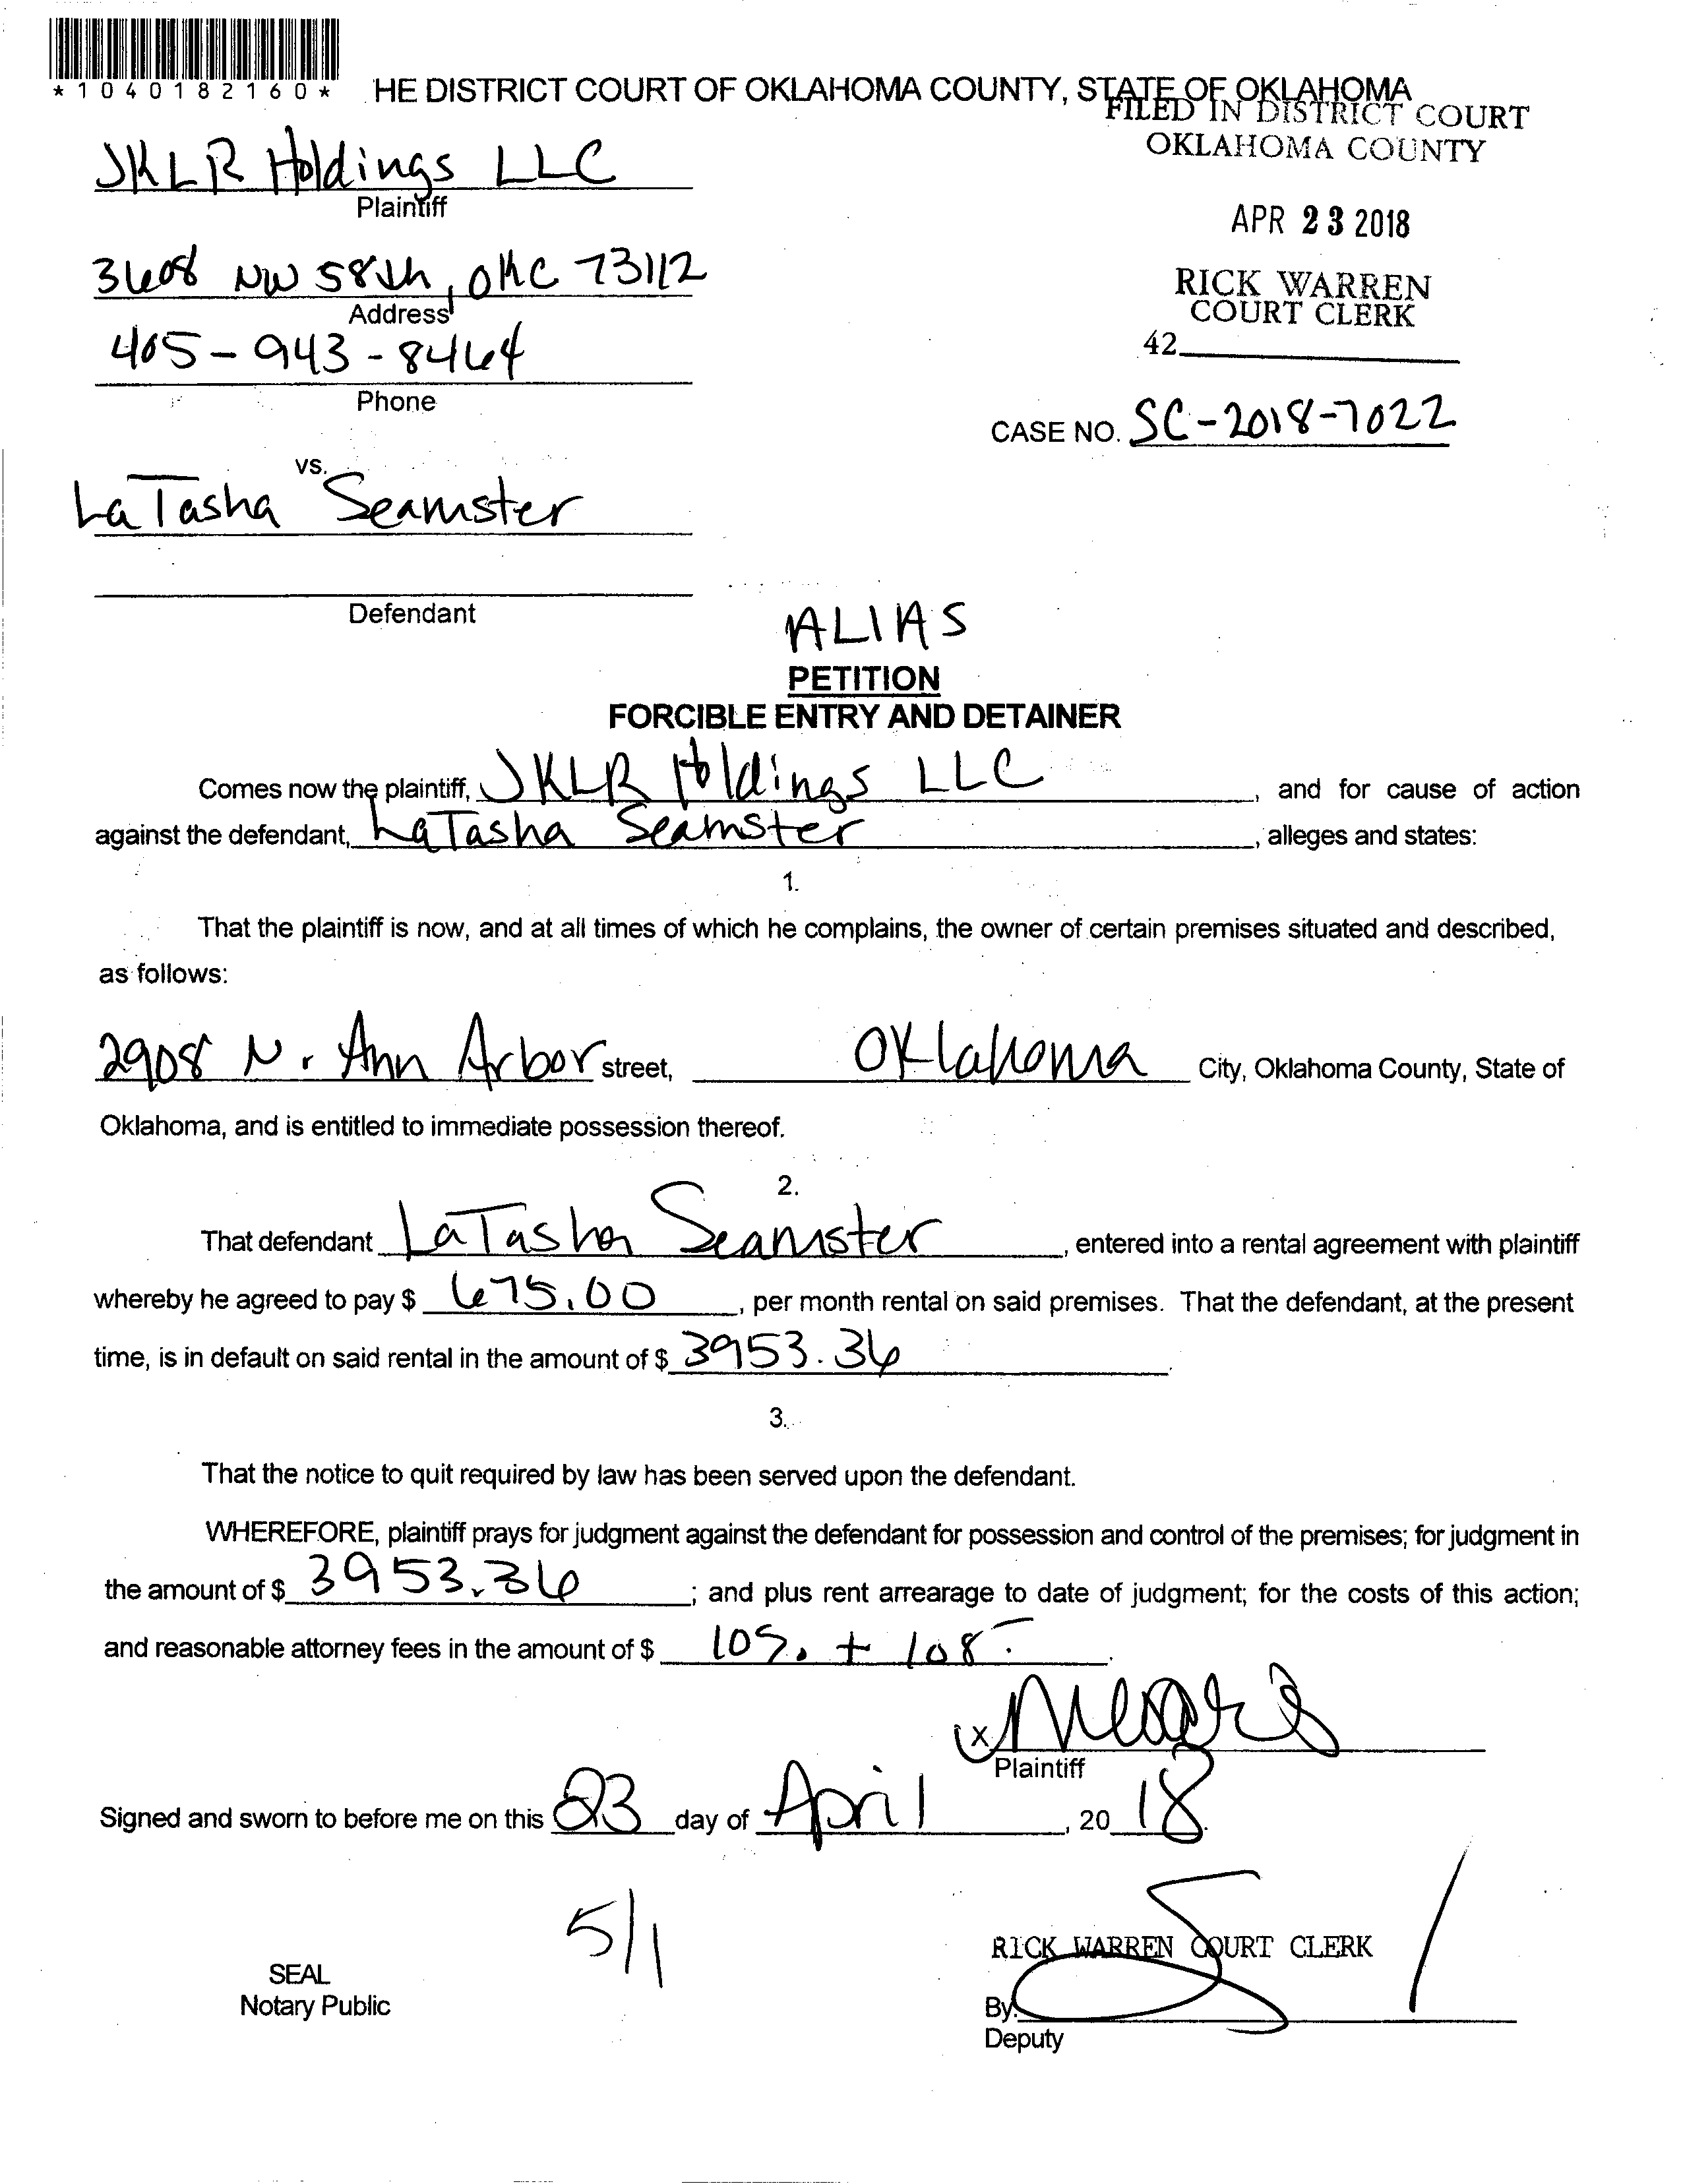 *1040182160*
HE DISTRICT COURT OF OKLAHOMA COUNTY, STATE OF OKLAHOMA
FILED IN DISTRICT COURT
OKLAHOMA COUNTY
JKLR Holdings LLC
Plaintiff
APR 23 2018
3608 NW 58th, OKC 73112
Address
RICK WARREN
COURT CLERK
405-943-8464
42
Phone
CASE NO. SC-2018-7022
vs.
LaTasha Seamster
Defendant
ALIAS
PETITION
FORCIBLE ENTRY AND DETAINER
Comes now the plaintiff, JKLR Holdings LLC, and for cause of action
against the defendant, LaTasha Seamster, alleges and states:
1.
That the plaintiff is now, and at all times of which he complains, the owner of certain premises situated and described,
as follows:
2908 N. Ann Arbor street, Oklahoma City, Oklahoma County, State of
Oklahoma, and is entitled to immediate possession thereof.
2.
That defendant LaTasha Seamster, entered into a rental agreement with plaintiff
whereby he agreed to pay $ 675.00, per month rental on said premises. That the defendant, at the present
time, is in default on said rental in the amount of $ 3953.36.
3.
That the notice to quit required by law has been served upon the defendant.
WHEREFORE, plaintiff prays for judgment against the defendant for possession and control of the premises; for judgment in
the amount of $ 3953.36; and plus rent arrearage to date of judgment; for the costs of this action;
and reasonable attorney fees in the amount of $ 105. + 108.-
x
Plaintiff
Signed and sworn to before me on this 23 day of April, 20 18.
5/1
RICK WARREN COURT CLERK
SEAL
Notary Public
By:
Deputy